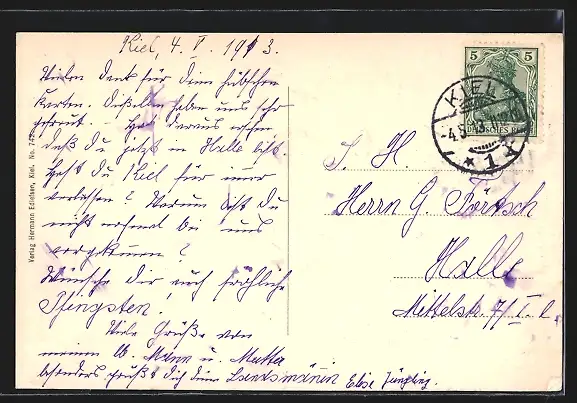 Kiel, 4. V. 1913.
Vielen Dank für Deine hübschen
Karten. Dieselben haben uns sehr
gefreut. – Hab daraus ersehen,
daß Du jetzt in Halle bist.
Hast Du Kiel für immer
verlassen? Warum bist Du
nicht nochmal bei uns
vorgekommen?
Wünsche Dir auch fröhliche
Pfingsten!
Viele Grüße von
meinem Mann u. Mutter
besonders grüßt Dich Deine Landsmännin Elise
Verlag Hermann Edlefsen, Kiel. No. 74
5 5
DEUTSCHES REICH
KIEL
1
S. H.
Herrn G. Pörtsch
Halle
Mittelstr. 7/I. l.